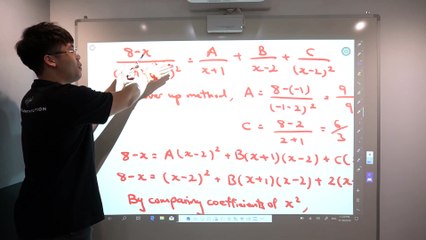 8-x = A + B + C
x+1 x-2 (x-2)²
over up method, A = 8-(-1) = 9
(-1-2)² 9
C = 8-2 = 6
2+1 3
8-x = A(x-2)² + B(x+1)(x-2) + C(
8-x = (x-2)² + B(x+1)(x-2) + 2(x
By comparing coefficients of x²,